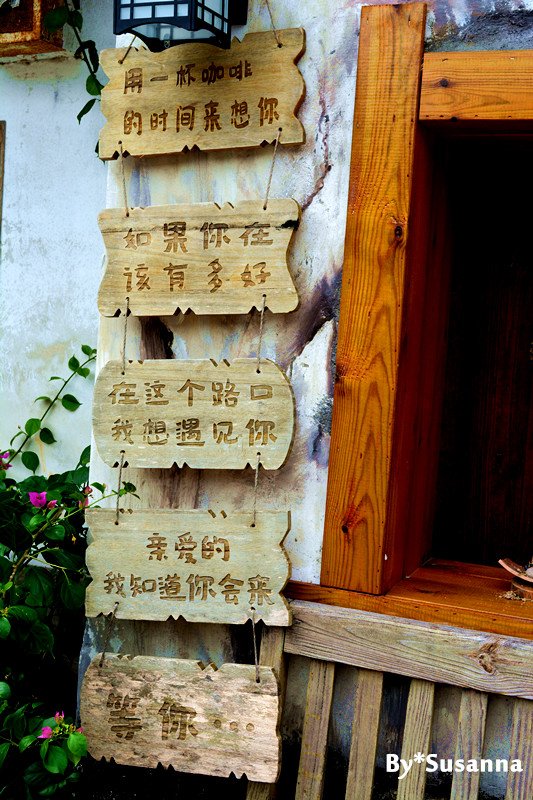 用一杯咖啡
的时间来想你
如果你在
该有多好
在这个路口
我想遇见你
亲爱的
我知道你会来
等你...
By*Susanna